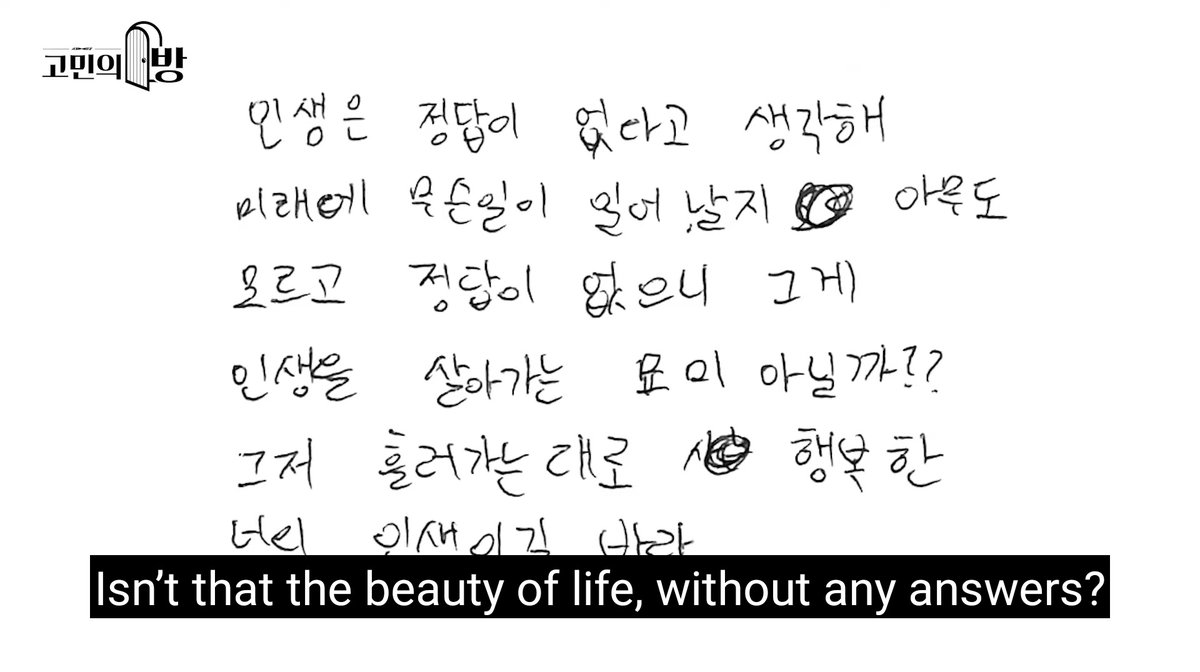 고민의방
인생은 정답이 없다고 생각해
미래에 무슨일이 일어날지 아무도
모르고 정답이 없으니 그게
인생을 살아가는 묘미 아닐까??
그저 흘러가는대로 행복한
너의 인생이길 바라
Isn’t that the beauty of life, without any answers?